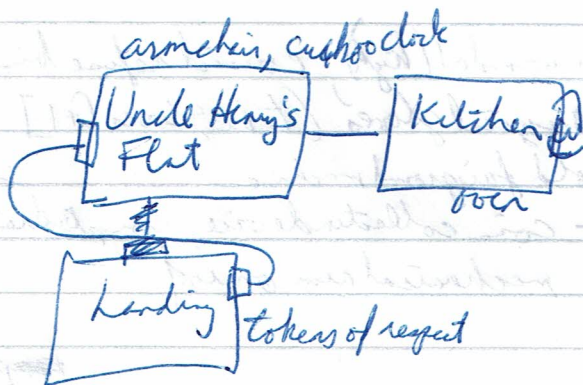 armchair, cuckoo clock
Uncle Henry's
Flat
Kitchen
oven
Landing
tokens of respect